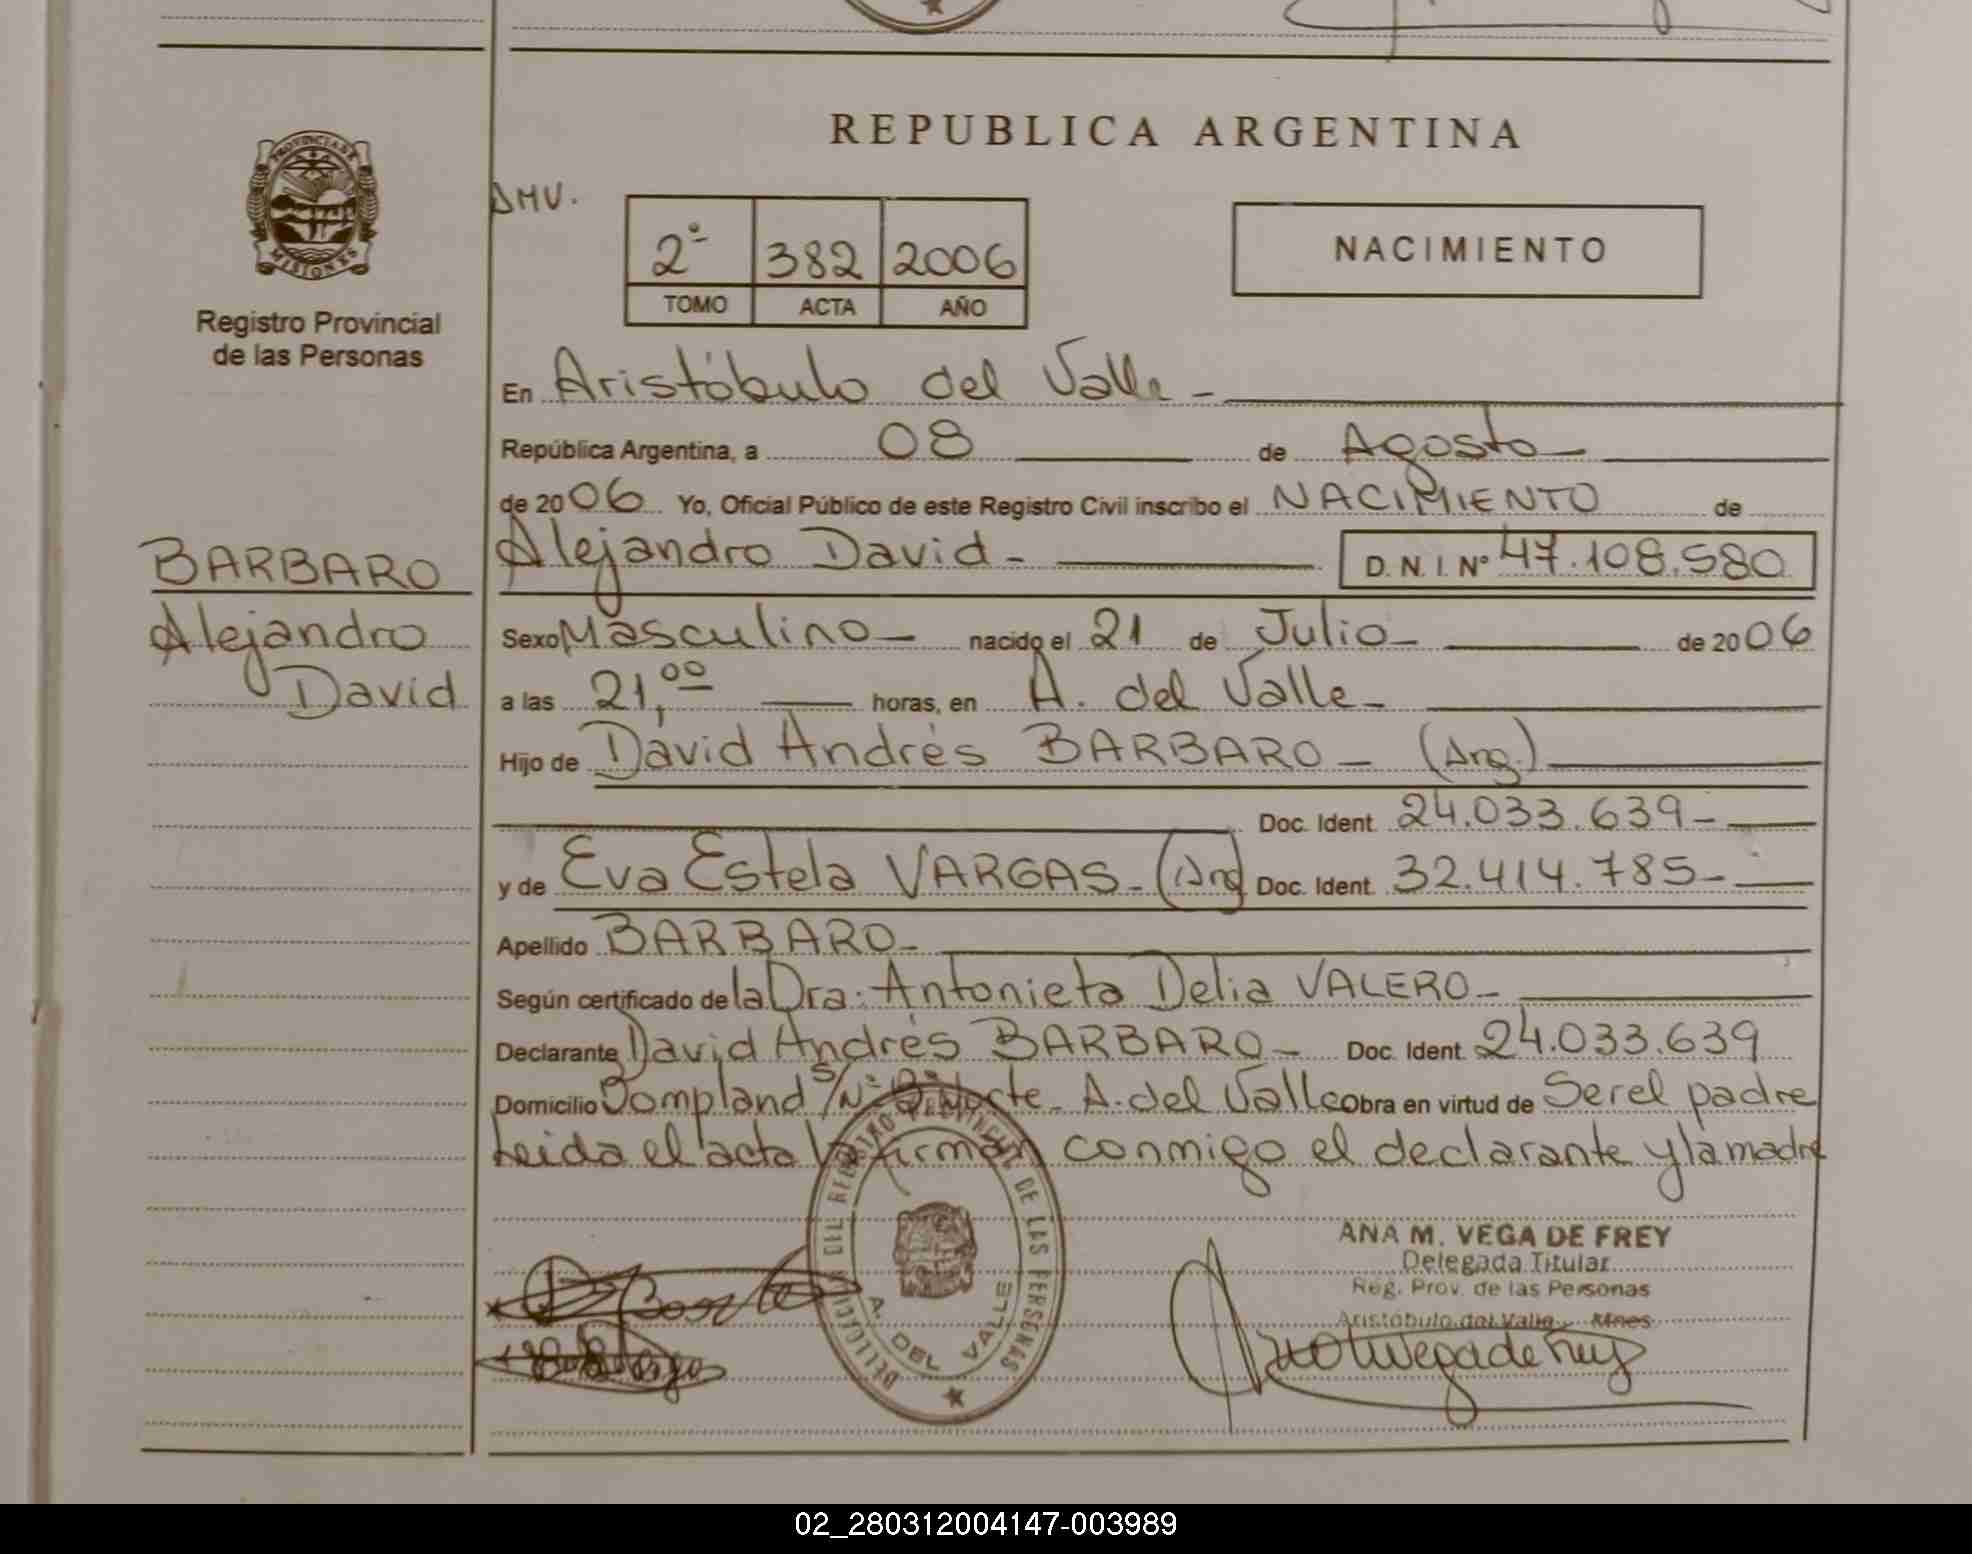 REPUBLICA ARGENTINA
PROVINCIA DE
MISIONES
Registro Provincial
de las Personas
AMV.
2º 382 2006
TOMO ACTA AÑO
NACIMIENTO
En Aristóbulo del Valle
República Argentina, a 08 de Agosto
de 2006 Yo, Oficial Público de este Registro Civil inscribo el NACIMIENTO de
BARBARO
Alejandro
David
Alejandro David- D. N. I. Nº 47.108.580
Sexo Masculino nacido el 21 de Julio de 2006
a las 21,00 horas, en A. del Valle
Hijo de David Andrés BARBARO (Arg.)
Doc. Ident. 24.033.639-
y de Eva Estela VARGAS-(Arg) Doc. Ident. 32.414.785-
Apellido BARBARO-
Según certificado de la Dra. Antonieta Delia VALERO-
Declarante David Andrés BARBARO- Doc. Ident. 24.033.639
Domicilio Bompland S/Nº Bº Norte- A. del Valle Obra en virtud de Ser el padre
Leida el acta la firman conmigo el declarante y la madre
DEL REGISTRO PROVINCIAL DE LAS PERSONAS
A. DEL VALLE
ANA M. VEGA DE FREY
Delegada Titular
Reg. Prov. de las Personas
Aristóbulo del Valle Mnes
02_280312004147-003989